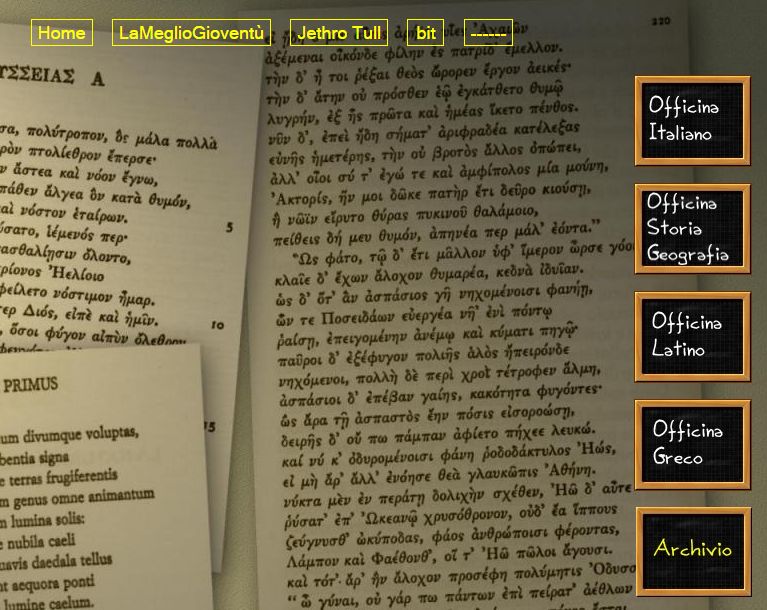 Home LaMeglioGioventù Jethro Tull bit ------
220
ἀξέμεναι οἰκόνδε φίλην ἐς πατρίδ' ἔμελλον.
τὴν δ' ἦ τοι ῥέξαι θεὸς ὤρορεν ἔργον ἀεικές·
τὴν δ' ἄτην οὐ πρόσθεν ἑῷ ἐγκάτθετο θυμῷ
λυγρήν, ἐξ ἧς πρῶτα καὶ ἡμέας ἵκετο πένθος.
νῦν δ', ἐπεὶ ἤδη σήματ' ἀριφραδέα κατέλεξας
εὐνῆς ἡμετέρης, τὴν οὐ βροτὸς ἄλλος ὀπώπει,
ἀλλ' οἶοι σύ τ' ἐγώ τε καὶ ἀμφίπολος μία μούνη,
Ἀκτορίς, ἥν μοι δῶκε πατὴρ ἔτι δεῦρο κιούσῃ,
ἣ νῶϊν εἴρυτο θύρας πυκινοῦ θαλάμοιο,
πείθεις δή μευ θυμόν, ἀπηνέα περ μάλ' ἐόντα."
Ὣς φάτο, τῷ δ' ἔτι μᾶλλον ὑφ' ἵμερον ὦρσε γόοι
κλαῖε δ' ἔχων ἄλοχον θυμαρέα, κεδνὰ ἰδυῖαν.
ὡς δ' ὅτ' ἂν ἀσπάσιος γῆ νηχομένοισι φανήῃ,
ὧν τε Ποσειδάων εὐεργέα νῆ' ἐνὶ πόντῳ
ῥαίσῃ, ἐπειγομένην ἀνέμῳ καὶ κύματι πηγῷ·
παῦροι δ' ἐξέφυγον πολιῆς ἁλὸς ἤπειρόνδε
νηχόμενοι, πολλὴ δὲ περὶ χροῒ τέτροφεν ἅλμη,
ἀσπάσιοι δ' ἐπέβαν γαίης, κακότητα φυγόντες·
ὣς ἄρα τῇ ἀσπαστὸς ἔην πόσις εἰσοροώσῃ,
δειρῆς δ' οὔ πω πάμπαν ἀφίετο πήχεε λευκώ.
καί νύ κ' ὀδυρομένοισι φάνη ῥοδοδάκτυλος Ἠώς,
εἰ μὴ ἄρ' ἄλλ' ἐνόησε θεὰ γλαυκῶπις Ἀθήνη.
νύκτα μὲν ἐν περάτῃ δολιχὴν σχέθεν, Ἠῶ δ' αὖτε
ῥύσατ' ἐπ' Ὠκεανῷ χρυσόθρονον, οὐδ' ἔα ἵππους
ζεύγνυσθ' ὠκύποδας, φάος ἀνθρώποισι φέροντας,
Λάμπον καὶ Φαέθονθ', οἵ τ' Ἠῶ πῶλοι ἄγουσι.
καὶ τότ' ἄρ' ἣν ἄλοχον προσέφη πολύμητις Ὀδυσσ
"ὦ γύναι, οὐ γάρ πω πάντων ἐπὶ πείρατ' ἀέθλων
ΥΣΣΕΙΑΣ Α
σα, πολύτροπον, ὃς μάλα πολλὰ
ρὸν πτολίεθρον ἔπερσε·
ν ἄστεα καὶ νόον ἔγνω,
πάθεν ἄλγεα ὃν κατὰ θυμόν,
αὶ νόστον ἑταίρων.
ύσατο, ἱέμενός περ· 5
ασθαλίῃσιν ὄλοντο,
ερίονος Ἠελίοιο
φείλετο νόστιμον ἦμαρ.
τερ Διός, εἰπὲ καὶ ἡμῖν.
, ὅσοι φύγον αἰπὺν ὄλεθρον 10
15
PRIMUS
um divumque voluptas,
bentia signa
e terras frugiferentis
m genus omne animantum
m lumina solis:
e nubila caeli
uavis daedala tellus
nt aequora ponti
lumine caelum.
Officina
Italiano
Officina
Storia
Geografia
Officina
Latino
Officina
Greco
Archivio